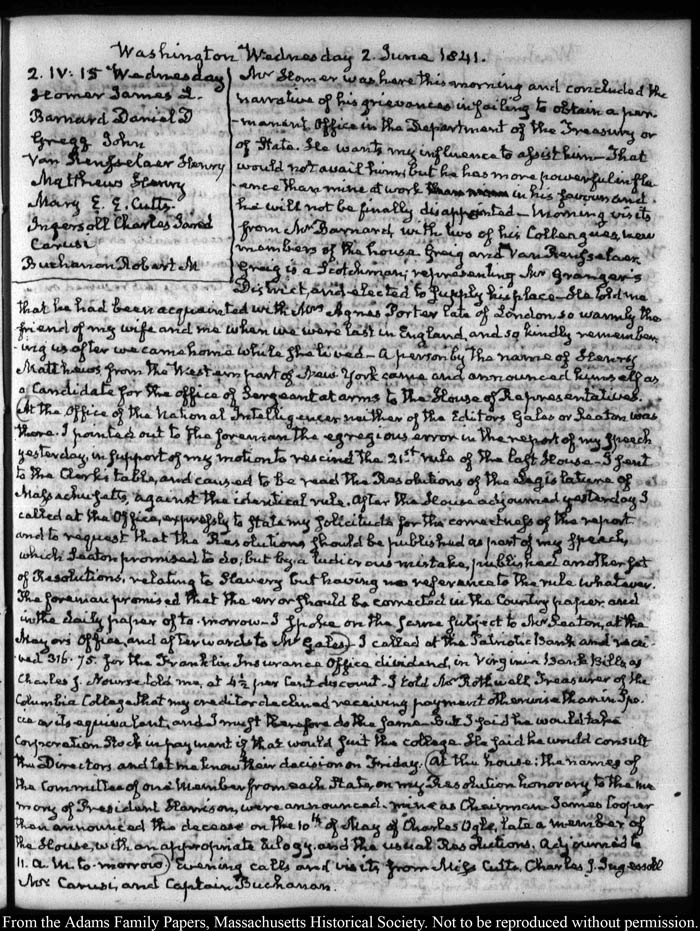 Washington Wednesday 2. June 1841.
2. IV: 15 Wednesday
Homer James L.
Barnard Daniel D
Gregg John
Van Rensselaer Henry
Matthews Henry
Mary E. E. Cutts
Ingersoll Charles Jared
Carusi
Buchanan Robert M
Mr Homer was here this morning and concluded the
narrative of his grievances in failing to obtain a per-
-manent Office in the Department of the Treasury or
of State. He wants my influence to assist him— That
would not avail him, but he has more powerful influ-
-ence than mine at work in his favour and
he will not be finally disappointed— Morning visits
from Mr Barnard, with two of his Colleagues, new
members of the house Greig and Van Rensselaer
Greig is a Scotchman, representing Mr Granger's
District, and elected to supply his place— He told me
that he had been acquainted with Mrs Agnes Porter late of London, so warmly the
friend of my wife and me when we were last in England, and so kindly remember-
-ing us after we came home while she lived— A person by the name of Henry
Matthews from the Western part of New York came and announced himself as
a Candidate for the office of Sergeant at arms to the House of Representatives.
(At the Office of the National Intelligencer neither of the Editors Gales or Seaton was
there. I pointed out to the foreman the egregious error in the report of my Speech
yesterday, in support of my motion to rescind the 21st rule of the last House— I sent
to the Clerk's table, and caused to be read the Resolutions of the Legislature of
Massachusetts, against the identical rule. After the House adjourned yesterday I
called at the Office, expressly to state my solicitude for the correctness of the report
and to request that the Resolutions should be published as part of my speech,
which Seaton promised to do; but by a ludicrous mistake, published another set
of Resolutions, relating to Slavery but having no reference to the rule whatever.
The foreman promised that the error should be corrected in the Country paper and
in the daily paper of to-morrow— I spoke on the same subject to Mr Seaton, at the
Mayors Office, and afterwards to Mr Gales)— I called at the Patriotic Bank and recei-
-ved 316.75. for the Franklin Insurance Office dividend, in Virginia Bank Bills, as
Charles J. Nourse told me, at 4½ per Cent discount. I told Mr Rothwell, Treasurer of the
Columbia College that my creditor declined receiving payment otherwise than in Spe-
cie or its equivalent, and I must therefore do the same— But I said he would take
Corporation Stock in payment if that would suit the college. He said he would consult
the Directors and let me know their decision on Friday. (At the house: the names of
the Committee of one Member from each State, on my Resolution honorary to the me-
mory of President Harrison, were announced— mine as Chairman— James Cooper
then announced the decease on the 10th of May of Charles Ogle, late a member of
the House, with an appropriate Eulogy, and the usual Resolutions. Adjourned to
11. A. M. to-morrow) Evening calls and visits from Miss Cutts, Charles J. Ingersoll
Mr Carusi, and Captain Buchanan.
From the Adams Family Papers, Massachusetts Historical Society. Not to be reproduced without permission.